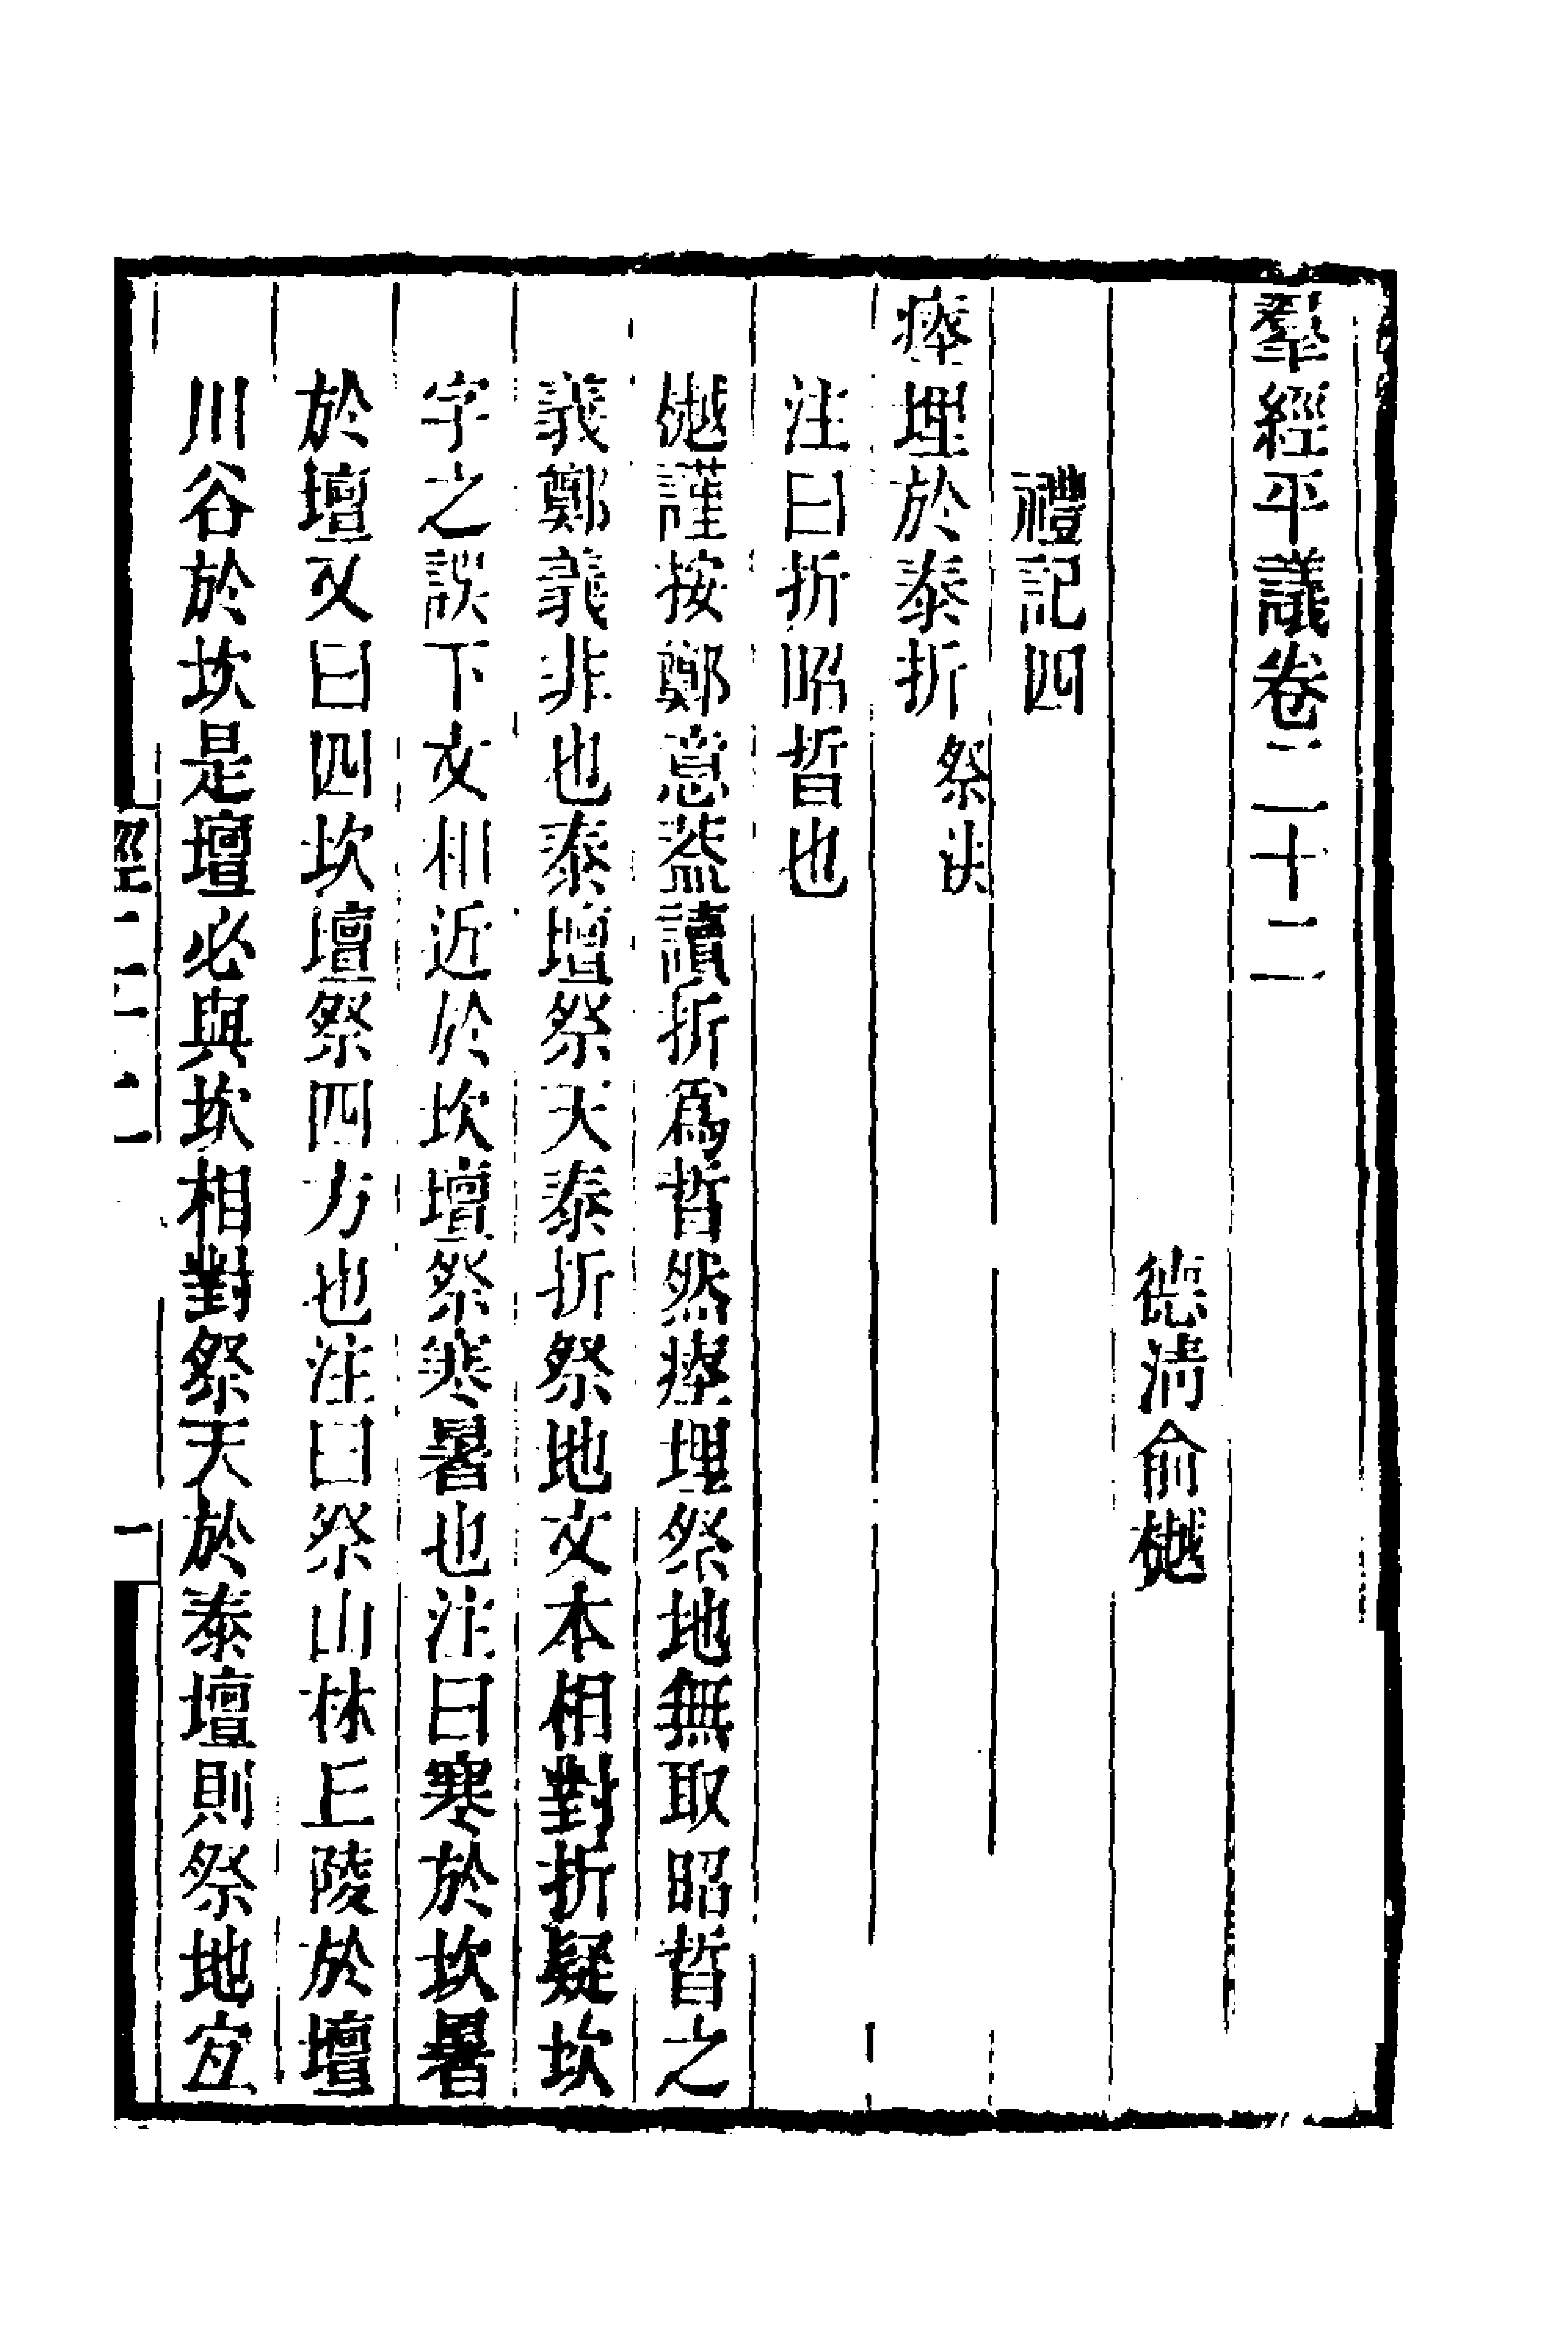 羣經平議卷二十二
德淸俞樾
禮記四
瘞埋於泰折祭法
注曰折昭晳也
樾謹按鄭意葢讀折爲晳然瘞埋祭地無取昭晳之
義鄭義非也泰壇祭天泰折祭地文本相對折疑坎
字之誤下文相近於坎壇祭寒暑也注曰寒於坎暑
於壇又曰四坎壇祭四方也注曰祭山林丘陵於壇
川谷於坎是壇必與坎相對祭天於泰壇則祭地宜
經二十二
一